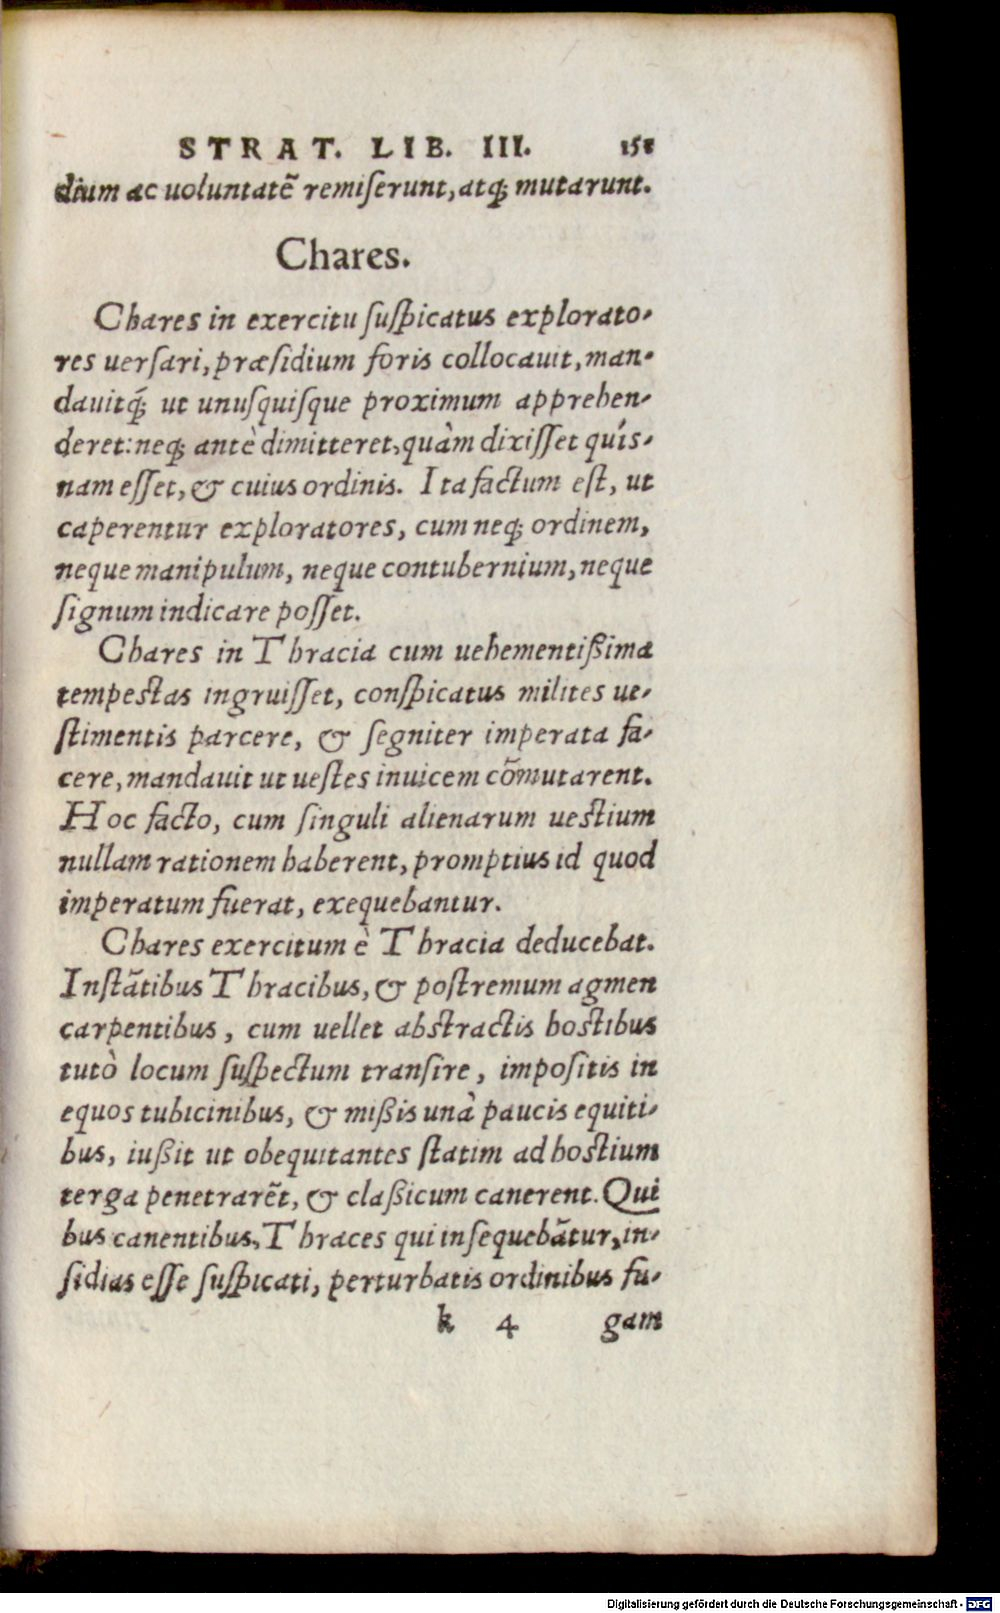 STRAT. LIB. III. 151
dium ac uoluntatẽ remiserunt, atq; mutarunt.
Chares.
Chares in exercitu suspicatus explorato-
res uersari, præsidium foris collocauit, man-
dauitq́; ut unusquisque proximum apprehen-
deret: neq; antè dimitteret, quàm dixisset quís-
nam esset, & cuius ordinis. Ita factum est, ut
caperentur exploratores, cum neq; ordinem,
neque manipulum, neque contubernium, neque
signum indicare posset.
Chares in Thracia cum uehementißima
tempestas ingruisset, conspicatus milites ue-
stimentis parcere, & segniter imperata fa-
cere, mandauit ut uestes inuicem cõmutarent.
Hoc facto, cum singuli alienarum uestium
nullam rationem haberent, promptius id quod
imperatum fuerat, exequebantur.
Chares exercitum è Thracia deducebat.
Instãtibus Thracibus, & postremum agmen
carpentibus, cum uellet abstractis hostibus
tutò locum suspectum transire, impositis in
equos tubicinibus, & mißis unà paucis equiti-
bus, iußit ut obequitantes statim ad hostium
terga penetrarẽt, & claßicum canerent. Qui
bus canentibus, Thraces qui insequebãtur, in-
sidias esse suspicati, perturbatis ordinibus fu-
k 4 gam
Digitalisierung gefördert durch die Deutsche Forschungsgemeinschaft - DFG